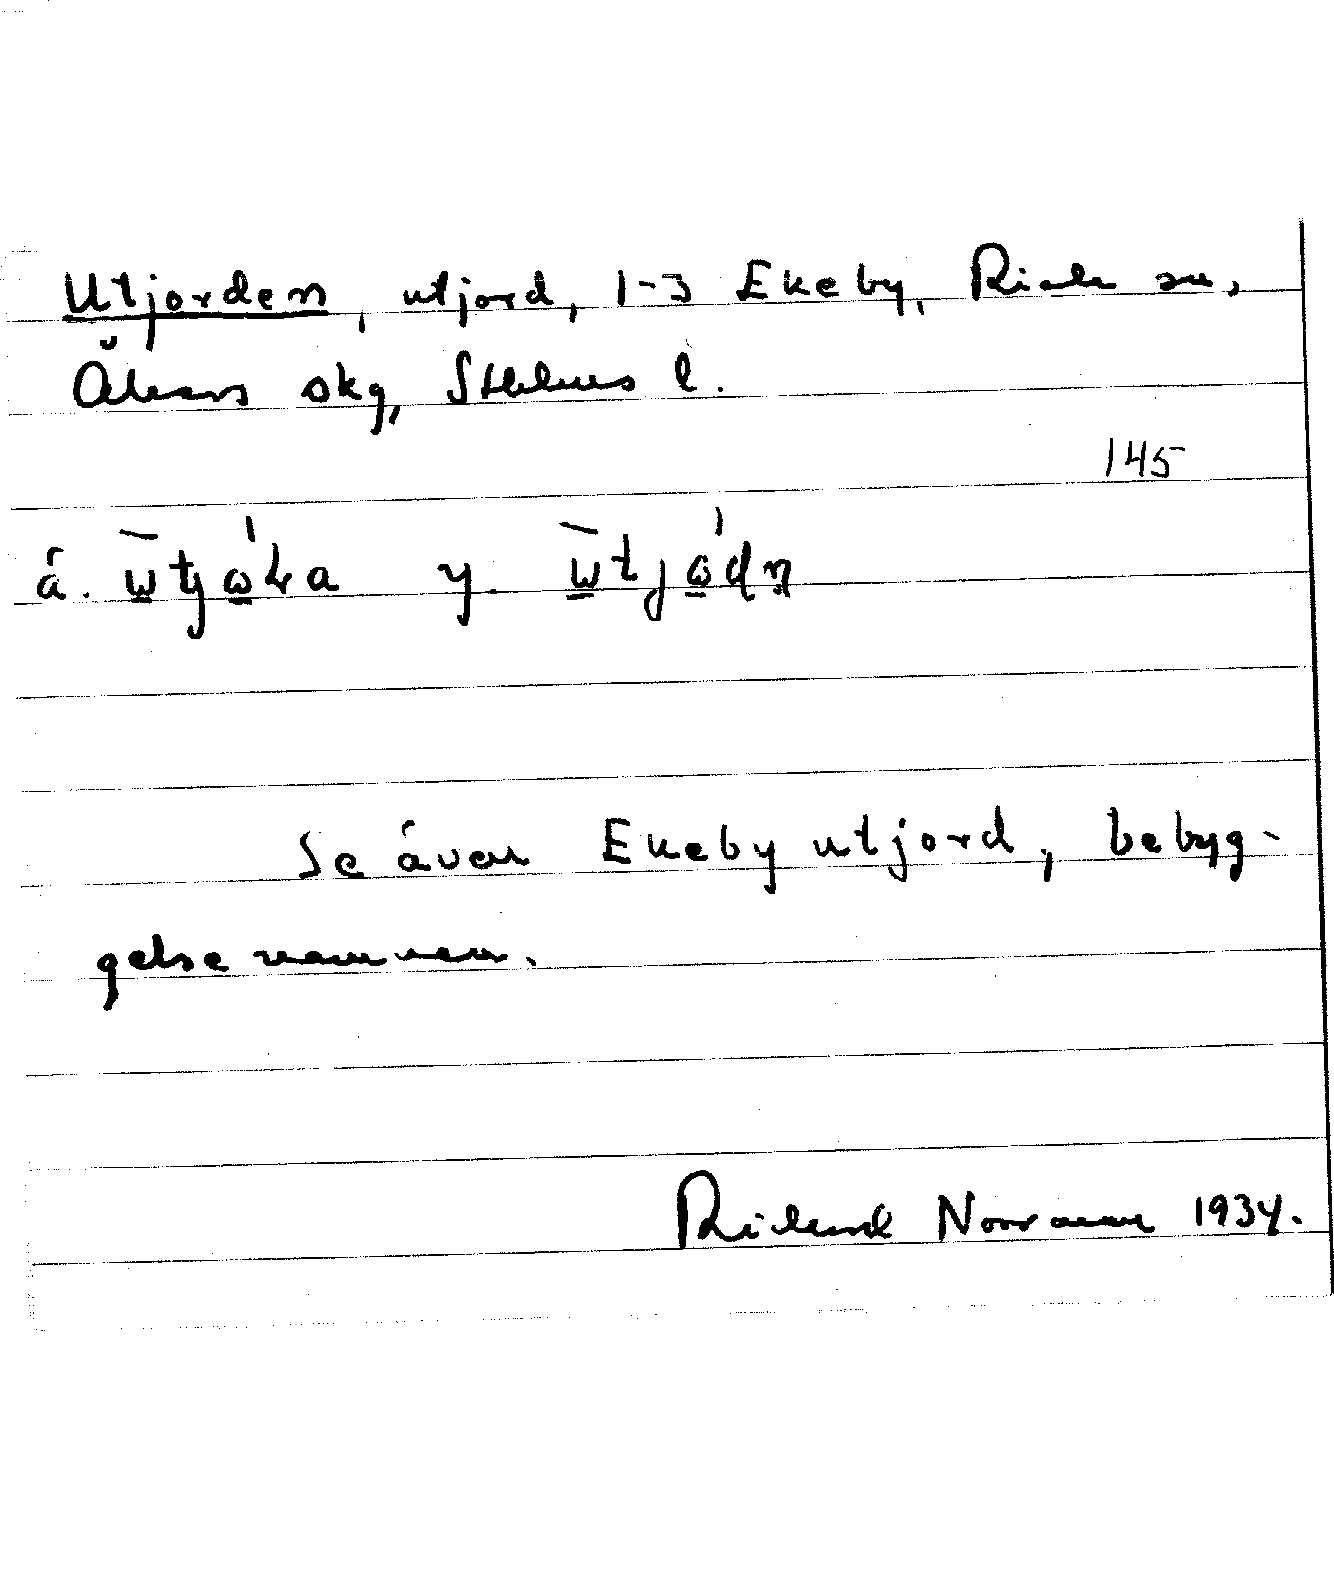 Utjorden, utjord, 1-3 Ekeby, Riala sn,
Åkers skg, Sthlms l.
145
ä. y.
Se även Ekeby utjord, bebyg-
gelsenamnen.
Rickard Norrman 1934.